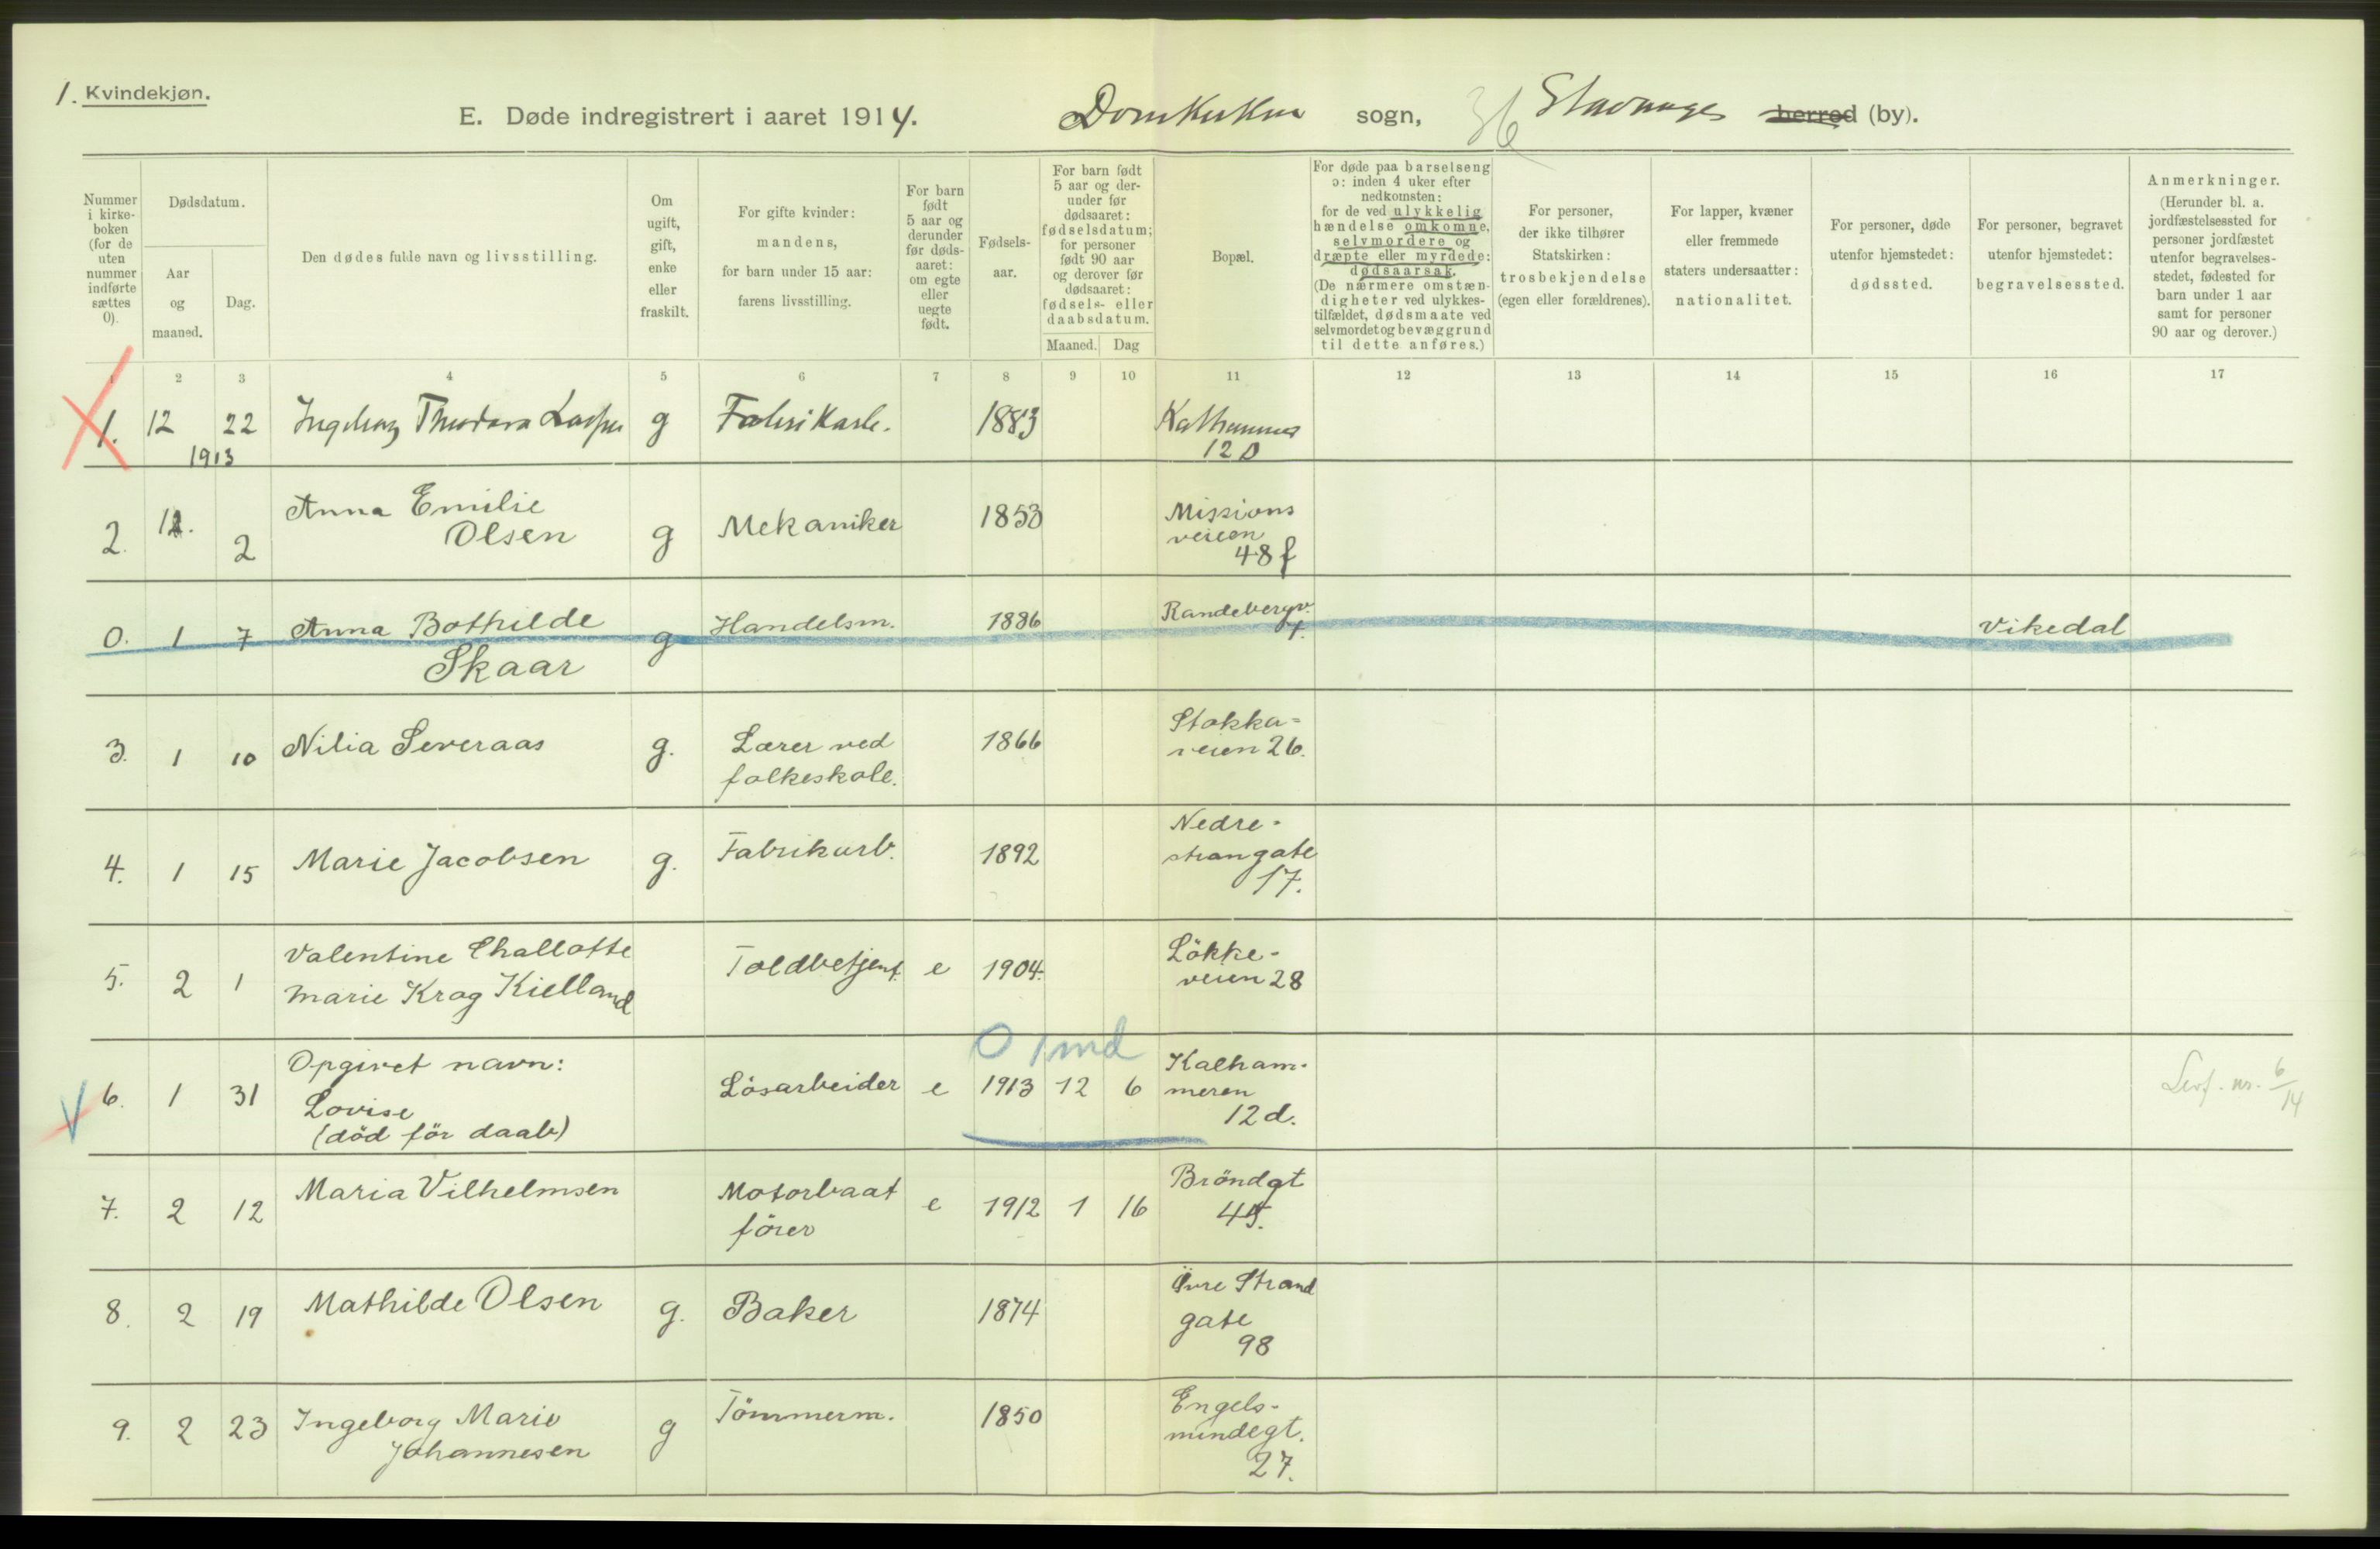 1. Kvindekjøn.
E. Døde indregistrert i aaret 1914. Domkirken sogn, 36 Stavanger herred (by).
Nummer i kirke-boken (for de uten nummer indførte sættes 0).
Dødsdatum.
Aar og maaned.
Dag.
Den dødes fulde navn og livsstilling.
Om ugift, gift, enke eller fraskilt.
For gifte kvinder: mandens, for barn under 15 aar: farens livsstilling.
For barn født 5 aar og derunder før døds-aaret: om egte eller uegte født.
Fødsels-aar.
For barn født 5 aar og der-under før dødsaaret: fødselsdatum; for personer født 90 aar og derover før dødsaaret: fødsels- eller daabsdatum.
Maaned. Dag
Bopæl.
For døde paa barselseng ɔ: inden 4 uker efter nedkomsten: for de ved ulykkelig hændelse omkomne, selvmordere og dræpte eller myrdede: dødsaarsak. (De nærmere omstæn-digheter ved ulykkes-tilfældet, dødsmaate ved selvmordet og bevæggrund til dette anføres.)
For personer, der ikke tilhører Statskirken: trosbekjendelse (egen eller forældrenes).
For lapper, kvæner eller fremmede staters undersaatter: nationalitet.
For personer, døde utenfor hjemstedet: dødssted.
For personer, begravet utenfor hjemstedet: begravelsessted.
Anmerkninger. (Herunder bl. a. jordfæstelsessted for personer jordfæstet utenfor begravelses-stedet, fødested for barn under 1 aar samt for personer 90 aar og derover.)
1 2 3 4 5 6 7 8 9 10 11 12 13 14 15 16 17
1. 12 22 Ingeborg Theodora g Fabrikarb. 1883
1913 12 D
2. 12. 2 Anna Emilie Olsen g Mekaniker 1853 Missions veien 48 f
0. 1 7 Anna Bothilde Skaar g Handelsm. 1886 Randebergv. 7. Vikedal
3. 1 10 Nilia Severaas g. Lærer ved folkeskole. 1866 Stokka= veien 26.
4. 1 15 Marie Jacobsen g. Fabrikarb. 1892 Nedre- strangate 17.
5. 2 1 Valentine Challotte Marie Krag Kielland Toldbetjent. e 1904. Lökke- veien 28
0 1 md
6. 1 31 Opgivet navn: Lovise (död för daab) Lösarbeider e 1913 12 6 Kalham- meren 12 d. nr. 6/14
7. 2 12 Maria Vilhelmsen Motorbaat förer e 1912 1 16 Bröndgt 45.
8. 2 19 Mathilde Olsen g. Baker 1874 Övre Strand gate 98
9. 2 23 Ingeborg Marie Johannesen g Tömmerm. 1850 Engels- mindegt. 27.